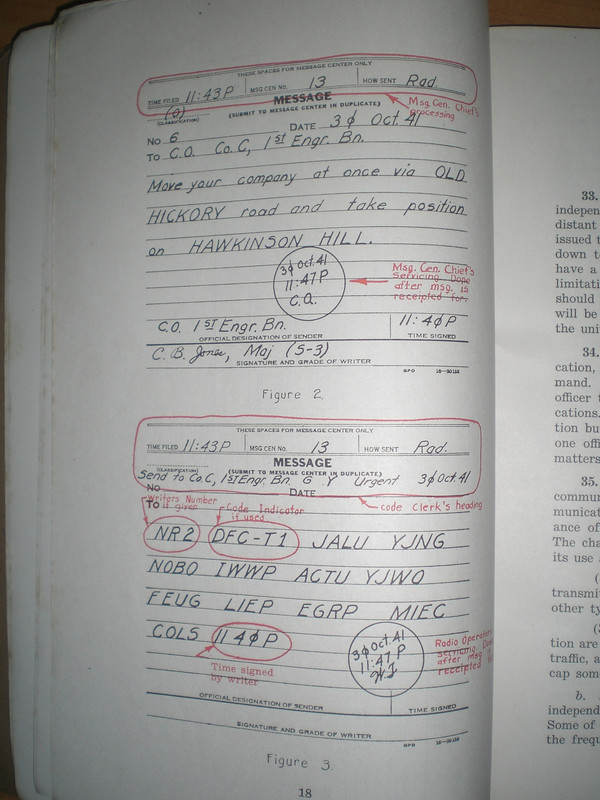 THESE SPACES FOR MESSAGE CENTER ONLY
TIME FILED 11:43 P MSG CEN No. 13 HOW SENT Rad.
MESSAGE
(SUBMIT TO MESSAGE CENTER IN DUPLICATE)
(O)
(CLASSIFICATION)
Msg. Cen. Chief's
processing
No 6 DATE 3Ø Oct. 41
TO C.O. Co. C, 1ST Engr. Bn.
Move your company at once via OLD
HICKORY road and take position
on HAWKINSON HILL.
3Ø Oct. 41
11:47 P
Msg. Cen. Chief's
servicing. Done
after msg. is
receipted for.
C.O. 1ST Engr. Bn. 11:4Ø P
OFFICIAL DESIGNATION OF SENDER TIME SIGNED
C. B. Jones, Maj (S-3)
SIGNATURE AND GRADE OF WRITER
GPO
Figure 2.
THESE SPACES FOR MESSAGE CENTER ONLY
TIME FILED 11:43 P MSG CEN No. 13 HOW SENT Rad.
MESSAGE
(CLASSIFICATION) (SUBMIT TO MESSAGE CENTER IN DUPLICATE)
Send to Co. C, 1ST Engr. Bn. G Y Urgent 3Ø Oct. 41
No DATE
TO
Writers Number
if given
Code Indicator
if used
code Clerk's heading
NR2 DFC-T1 JALU YJNG
NOBO IWWP ACTU YJWO
FEUG LIEP EGRP MIEC
COLS 11 4Ø P
3Ø Oct. 41
11:47 P
Time signed
by writer
OFFICIAL DESIGNATION OF SENDER TIME SIGNED
SIGNATURE AND GRADE OF WRITER
GPO
Figure 3.
18
33.
indepen
distant
issued t
down to
have a
limitati
should
will be
the uni
34.
cation,
mand.
officer t
cations.
tion bu
one offi
matters
35.
commu
municat
ance of
The cha
its use
transmi
other ty
tion are
traffic, a
cap som
b.
independ
Some of
the frequ